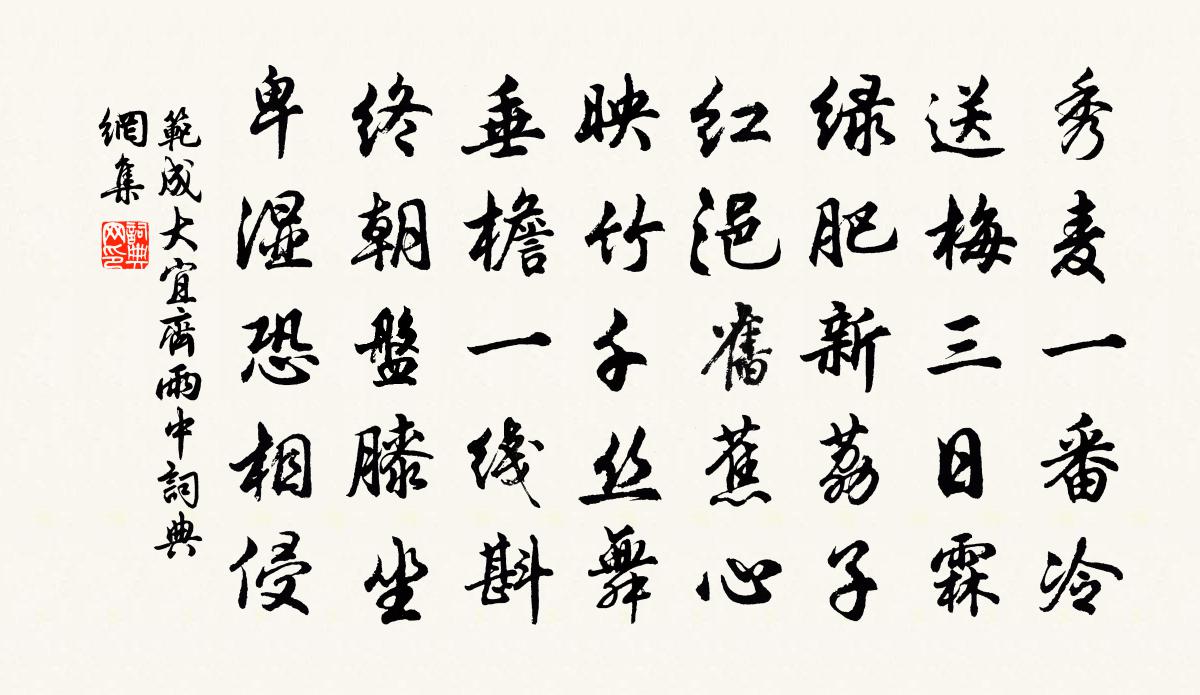 秀麦一番冷
送梅三日霖
绿肥新荔子
红浥舊蕉心
映竹千丝舞
垂檐一线斟
终朝盤膝坐
卑湿恐相侵
範成大宜齊雨中詞典
網集
詞典
网印